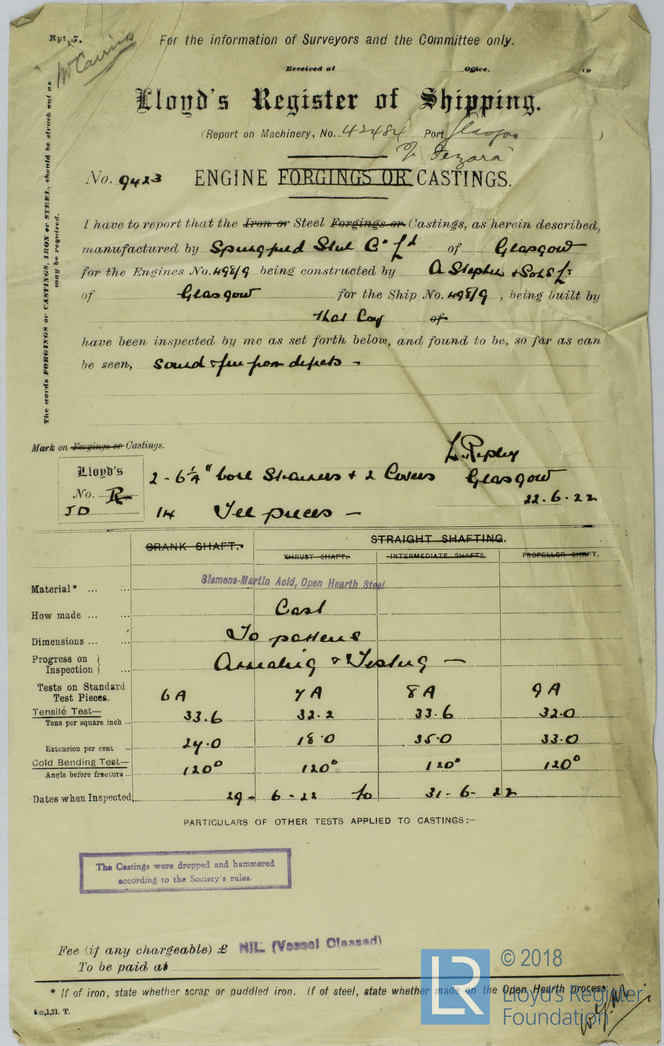 Rpt. 7.
For the information of Surveyors and the Committee only.
Received at Office, 19
Lloyd's Register of Shipping.
(Report on Machinery, No. 42484 Port Glasgow )
No. 9423 ENGINE FORGINGS OR CASTINGS.
The words FORGINGS or CASTINGS, IRON or STEEL, should be struck out as
may be required.
I have to report that the Iron or Steel Forgings or Castings, as herein described,
manufactured by Springfield Steel Co Ld of Glasgow
for the Engines No. 498/9 being constructed by A Stephen & Sons Ld
of Glasgow for the Ship No. 498/9, being built by
that Coy of
have been inspected by me as set forth below, and found to be, so far as can
be seen, sound & free from defects -
Mark on Forgings or Castings.
Lloyd's
No. R
JD
2 - 6¼" bore Strainers & 2 Covers
14 Tee pieces -
Glasgow
22-6-22
CRANK SHAFT. STRAIGHT SHAFTING.
THRUST SHAFT. INTERMEDIATE SHAFTS. PROPELLER SHAFT.
Material* ... Siemens-Martin Acid, Open Hearth Steel
How made ... Cast
Dimensions ... To patterns
Progress on Inspection Annealing & Testing -
Tests on Standard Test Pieces. 6A 7A 8A 9A
Tensile Test— Tons per square inch 33.6 32.2 33.6 32.0
Extension per cent 24.0 18.0 35.0 33.0
Cold Bending Test— Angle before fracture 120° 120° 120° 120°
Dates when Inspected 29-6-22 to 31-6-22
PARTICULARS OF OTHER TESTS APPLIED TO CASTINGS:—
The Castings were dropped and hammered
according to the Society's rules.
Fee (if any chargeable) £ NIL (Vessel Classed)
To be paid at
* If of iron, state whether scrap or puddled iron. If of steel, state whether made on the Open Hearth process
LR
© 2018
Lloyd's Register
Foundation